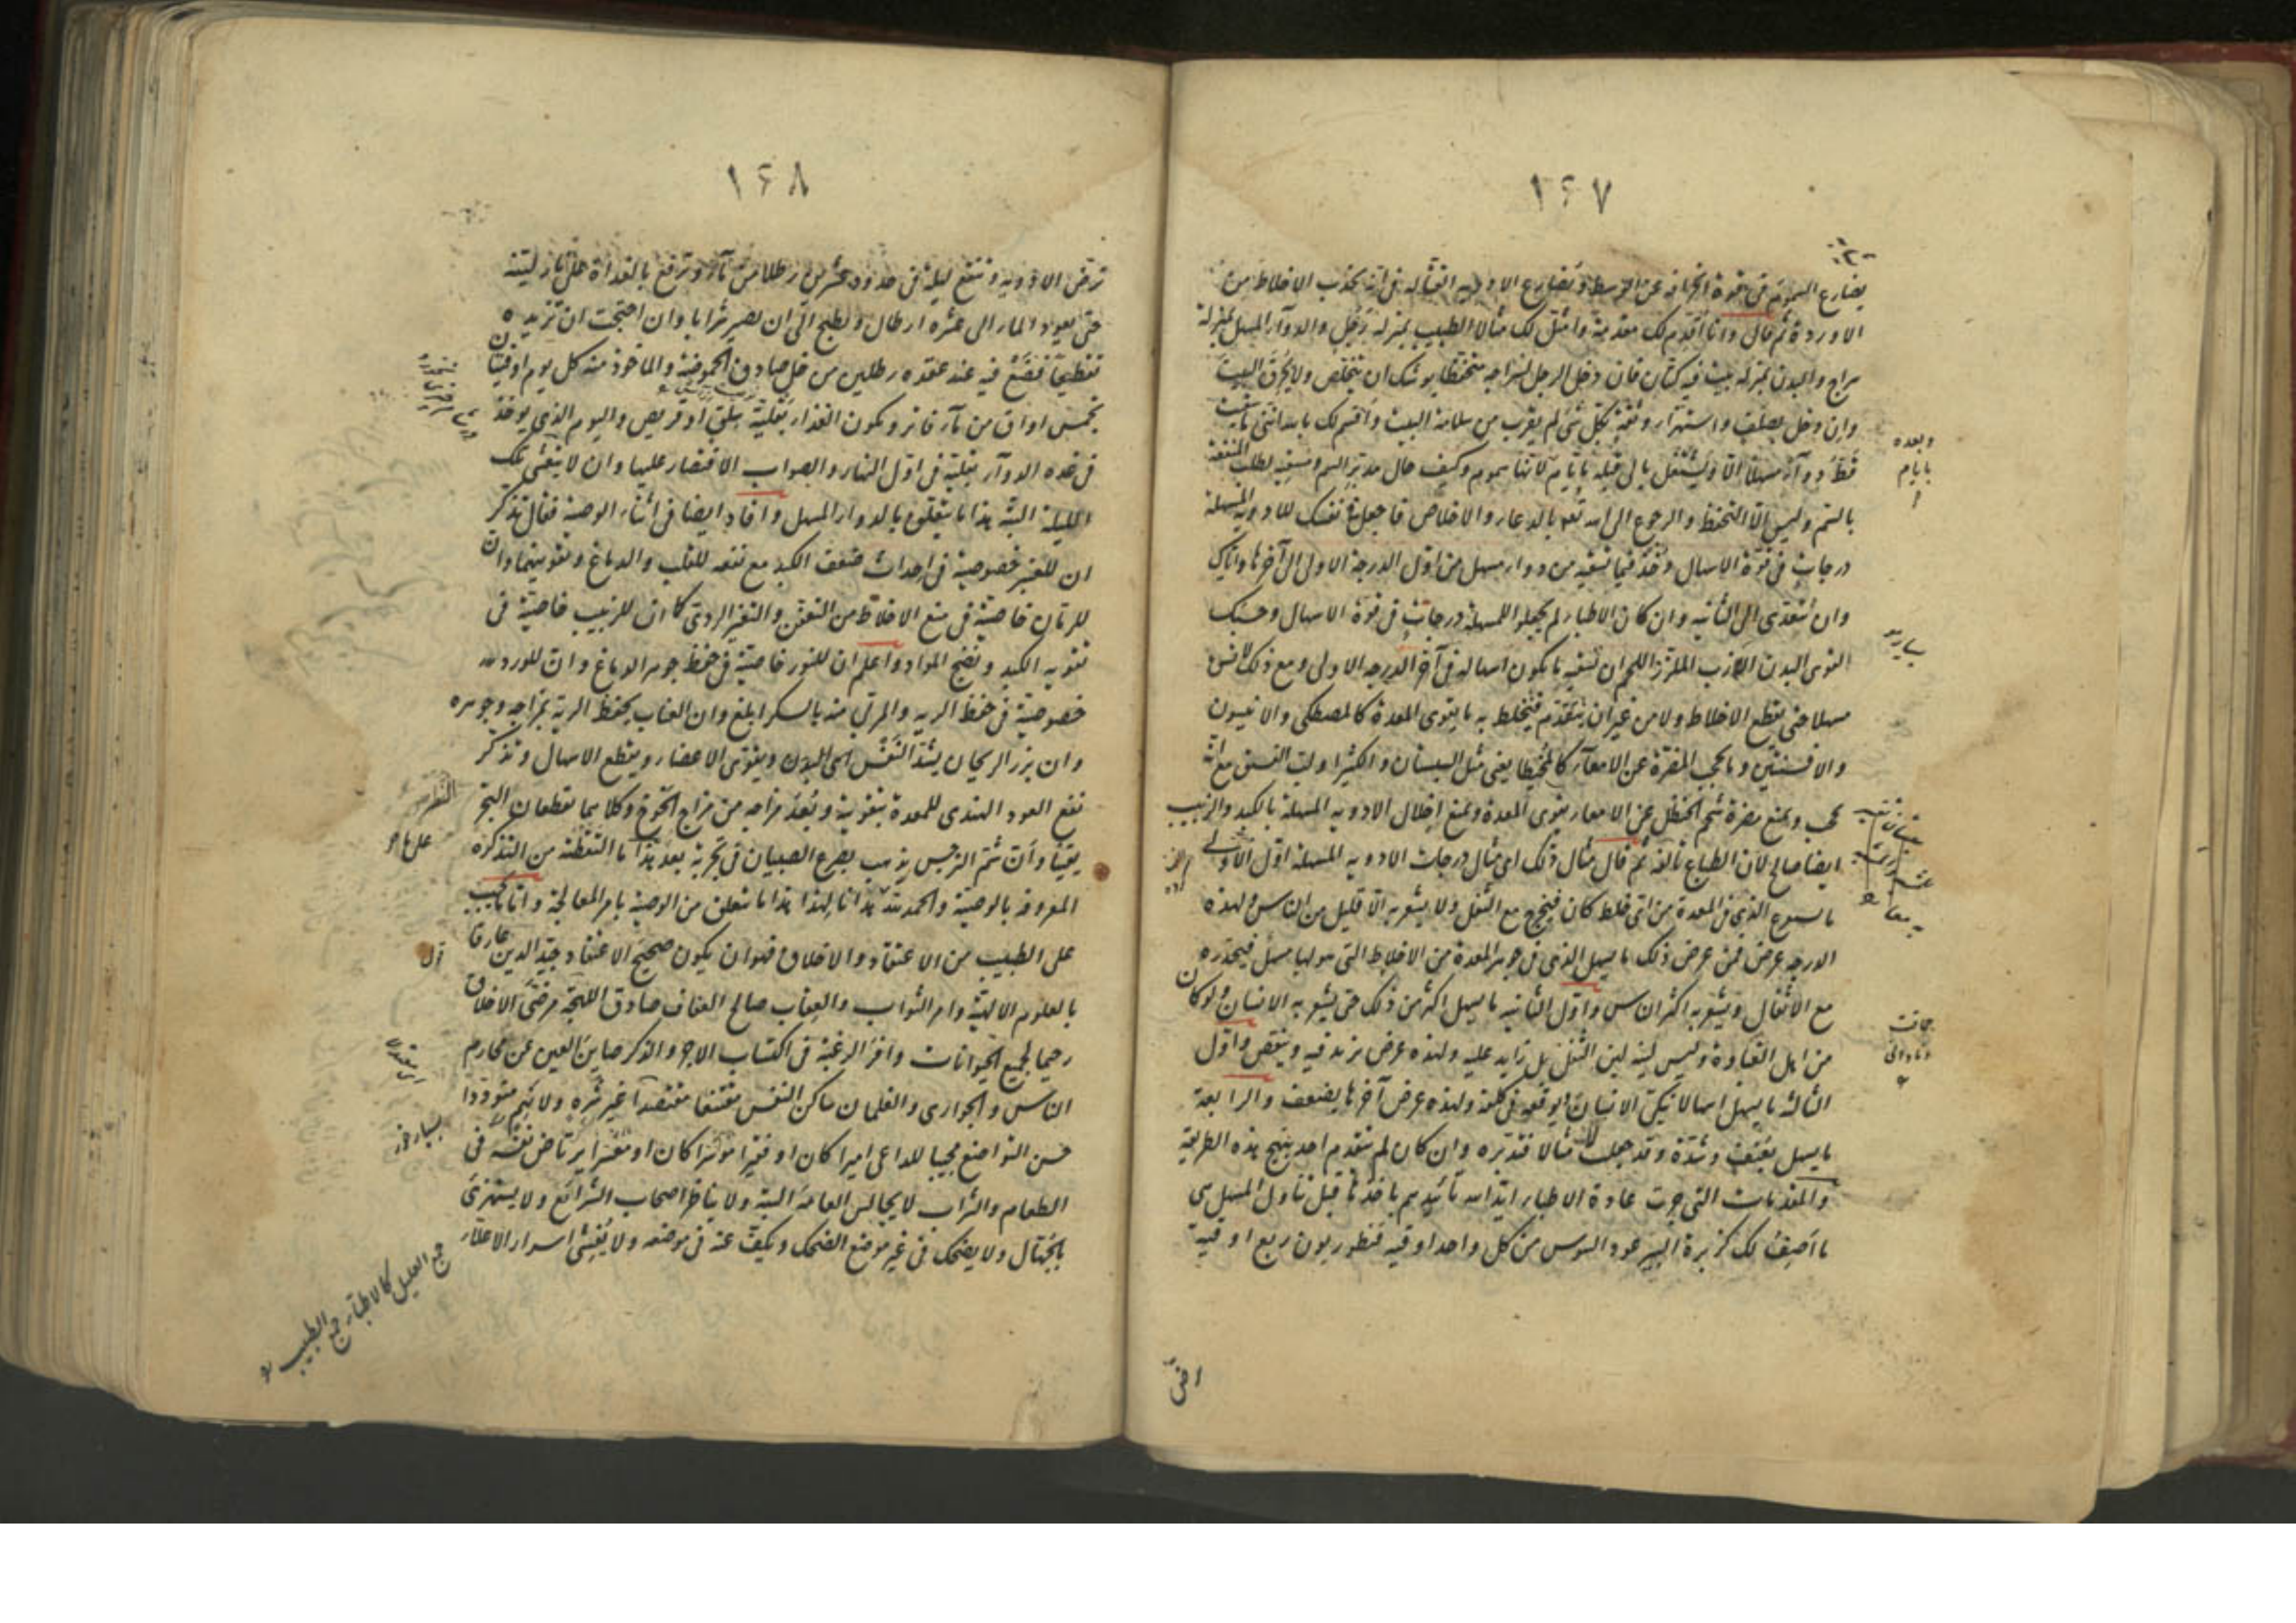 ١٦٧
يضارع السموم في قوة انحرافه عن التوسط ويضارع الادويه القتاله في انه يجذب الاخلاط من
الاوردة ثم قال وانا اقدم لك مقدمة وامثل لك مثالا الطبيب بمنزلة رجل والدوآء المسهل بمنزلة
سراج والبدن بمنزلة بيت فيه كتان فان دخل الرجل بسراجه متحفظا يوشك ان يتخلص ولا يحرق البيت
وان دخل بصلف واستهزاء وثقة بكل شئ لم يقرب من سلامة البيت واقسم لك بالله انني ما سقيت
قط دوآء مسهلا الا ويشتغل بالى قبله بايام لانها سموم وكيف حال مدبر السم ومسقيه لطلب المنفعة
بالسم وليس الا التحفظ والرجوع الى الله تعه بالدعاء والاخلاص فاجعل في نفسك للادويه المسهلة
درجات في قوة الاسهال وخذ فيما تسقيه من دواء مسهل من اول الدرجة الاولى الى آخرها واياك
وان تتعدى الى الثانيه وان كان الاطباء لم يجعلوا للمسهلة درجات في قوة الاسهال وحسبك
القوى البدن الملزز اللحم ان تسقيه ما يكون اسهاله في آخر الدرجه الاولى ومع ذلك لا تسق
مسهلا حتى يقطع الاخلاط ولا من غير ان يتقدم فتخلط به ما يقوى المعدة كالمصطكى والانيسون
والافسنتين وما يحجب المضرة عن الامعآء كالمخيطا يعنى مثل السبستان والكثيرا ولب الفستق مع انه
يحجب ويمنع مضرة شحم الحنظل عن الامعاء يقوى المعدة ويمنع اخلال الادويه المسهلة بالكبد والزبيب
ايضا صالح لان الطباع تألفه ثم قال مثال ذلك اى مثال درجات الادويه المسهلة اول الاولى
ما يسوع الذى في المعدة من اى خلط كان فيخرج مع الثفل ولا يشعر به الا قليل من الناس ولهذه
الدرجه عرض فمن عرض ذلك ما يسهل الذى في جرم المعدة من الاخلاط التى هو لها مسهل فيحدره
مع الاثفال ويشعر به اكثر الناس واول الثانيه ما يسهل اكثر من ذلك حتى يشعر به الانسان ولو كان
من اهل الغباوة وليس لينه لين الثفل بل زايد عليه ولهذه عرض يزيد فيه وينقص واول
الثالثة ما يسهل اسهالا ينكى الانسان او يوقعه في كلفة ولهذه عرض آخرها يضعف والرابعة
ما يسهل بعنف وشدة وقد جعلت لك مثالا فتدبره وان كان لم يتقدم احد ينهج هذه الطريقة
والمقدمات التى جرت عادة الاطباء ايدا الله تأييدهم باخذها قبل تناول المسهل هى
ما اصف لك كزبرة البير عود السوس من كل واحد اوقيه قنطوريون ربع اوقية
وبعده
بايام
اض
١٦٨
ترض الادويه وتنقع ليلة في حدود عشرين رطلا من مآء وترفع بالغداة على نار لينة
حتى يعود الماء الى عشرة ارطال ويطبخ الى ان يصير شرابا وان احتجت ان تزيده
تقطيعا فضع فيه عند عقده رطلين من خل صادق الحموضة والماخوذ منه كل يوم اوقيتان
بخمس اواق من مآء فاتر ويكون الغذاء بقلية سلق او قريص واليوم الذى يوخذ
في غده الدوآء بقلية في اول النهار والصواب الاقتصار عليها وان لا يتعشى تلك
الليلة البتة هذا ما يتعلق بالدواء المسهل وافاد ايضا في اثناء الوصية فقال تذكر
ان للعنبر خصوصية في احداث ضعف الكبد مع نفعه للقلب والدماغ وتقويتهما وان
للرمان خاصية في منع الاخلاط من التعفن والتغير الردى كما ان للزبيب خاصية في
تقويه الكبد ونضج المواد واعلم ان للنور خاصية في حفظ جوهر الدماغ وان للورد
خصوصية في حفظ الريه والمربى منه بالسكر ابلغ وان العناب يحفظ الرية بمزاجه وجوهره
وان بزر الريحان يشد النفس اى البدن ويقوى الاعضاء ويقطع الاسهال وتذكر
نفع العود الهندى للمعدة بتقوية وبعد مزاجه من مزاج الخوخ وكلاهما يقطعان البخر
يقينا وان شم النرجس يذهب بصرع الصبيان في تجربة بعد هذا ما التقطته من التذكرة
المعروفة بالوصية والحمد لله هدانا لهذا هذا ما يتعلق من الوصية بامر المعالجة واما ما يجب
على الطبيب من الاعتقاد والاخلاق فهو ان يكون صحيح الاعتقاد جيد الدين عارفا
بالعلوم الالهية وامر الثواب والعقاب صالح العفاف صادق اللهجة مرضى الاخلاق
رحيما لجميع الحيوانات وافر الرغبة في اكتساب الاجر والذكر صاين العين عن محارم
الناس والجوارى والغلمان ساكن النفس متقنعا مقتصدا غير شره ولا نهم متوددا
حسن التواضع مجيبا للداعى اميرا كان او فقيرا موثرا كان او مقترا يرتاض نفسه في
الطعام والشراب لا يجالس العامة البتة ولا يناظر اصحاب الشرائع ولا يستهزئ
بالجهال ولا يضحك في غير موضع الضحك ويكف عنه في موضعه ولا يفشى اسرار الاعلاء
جمع العليل كالاطبآء جمع الطبيب